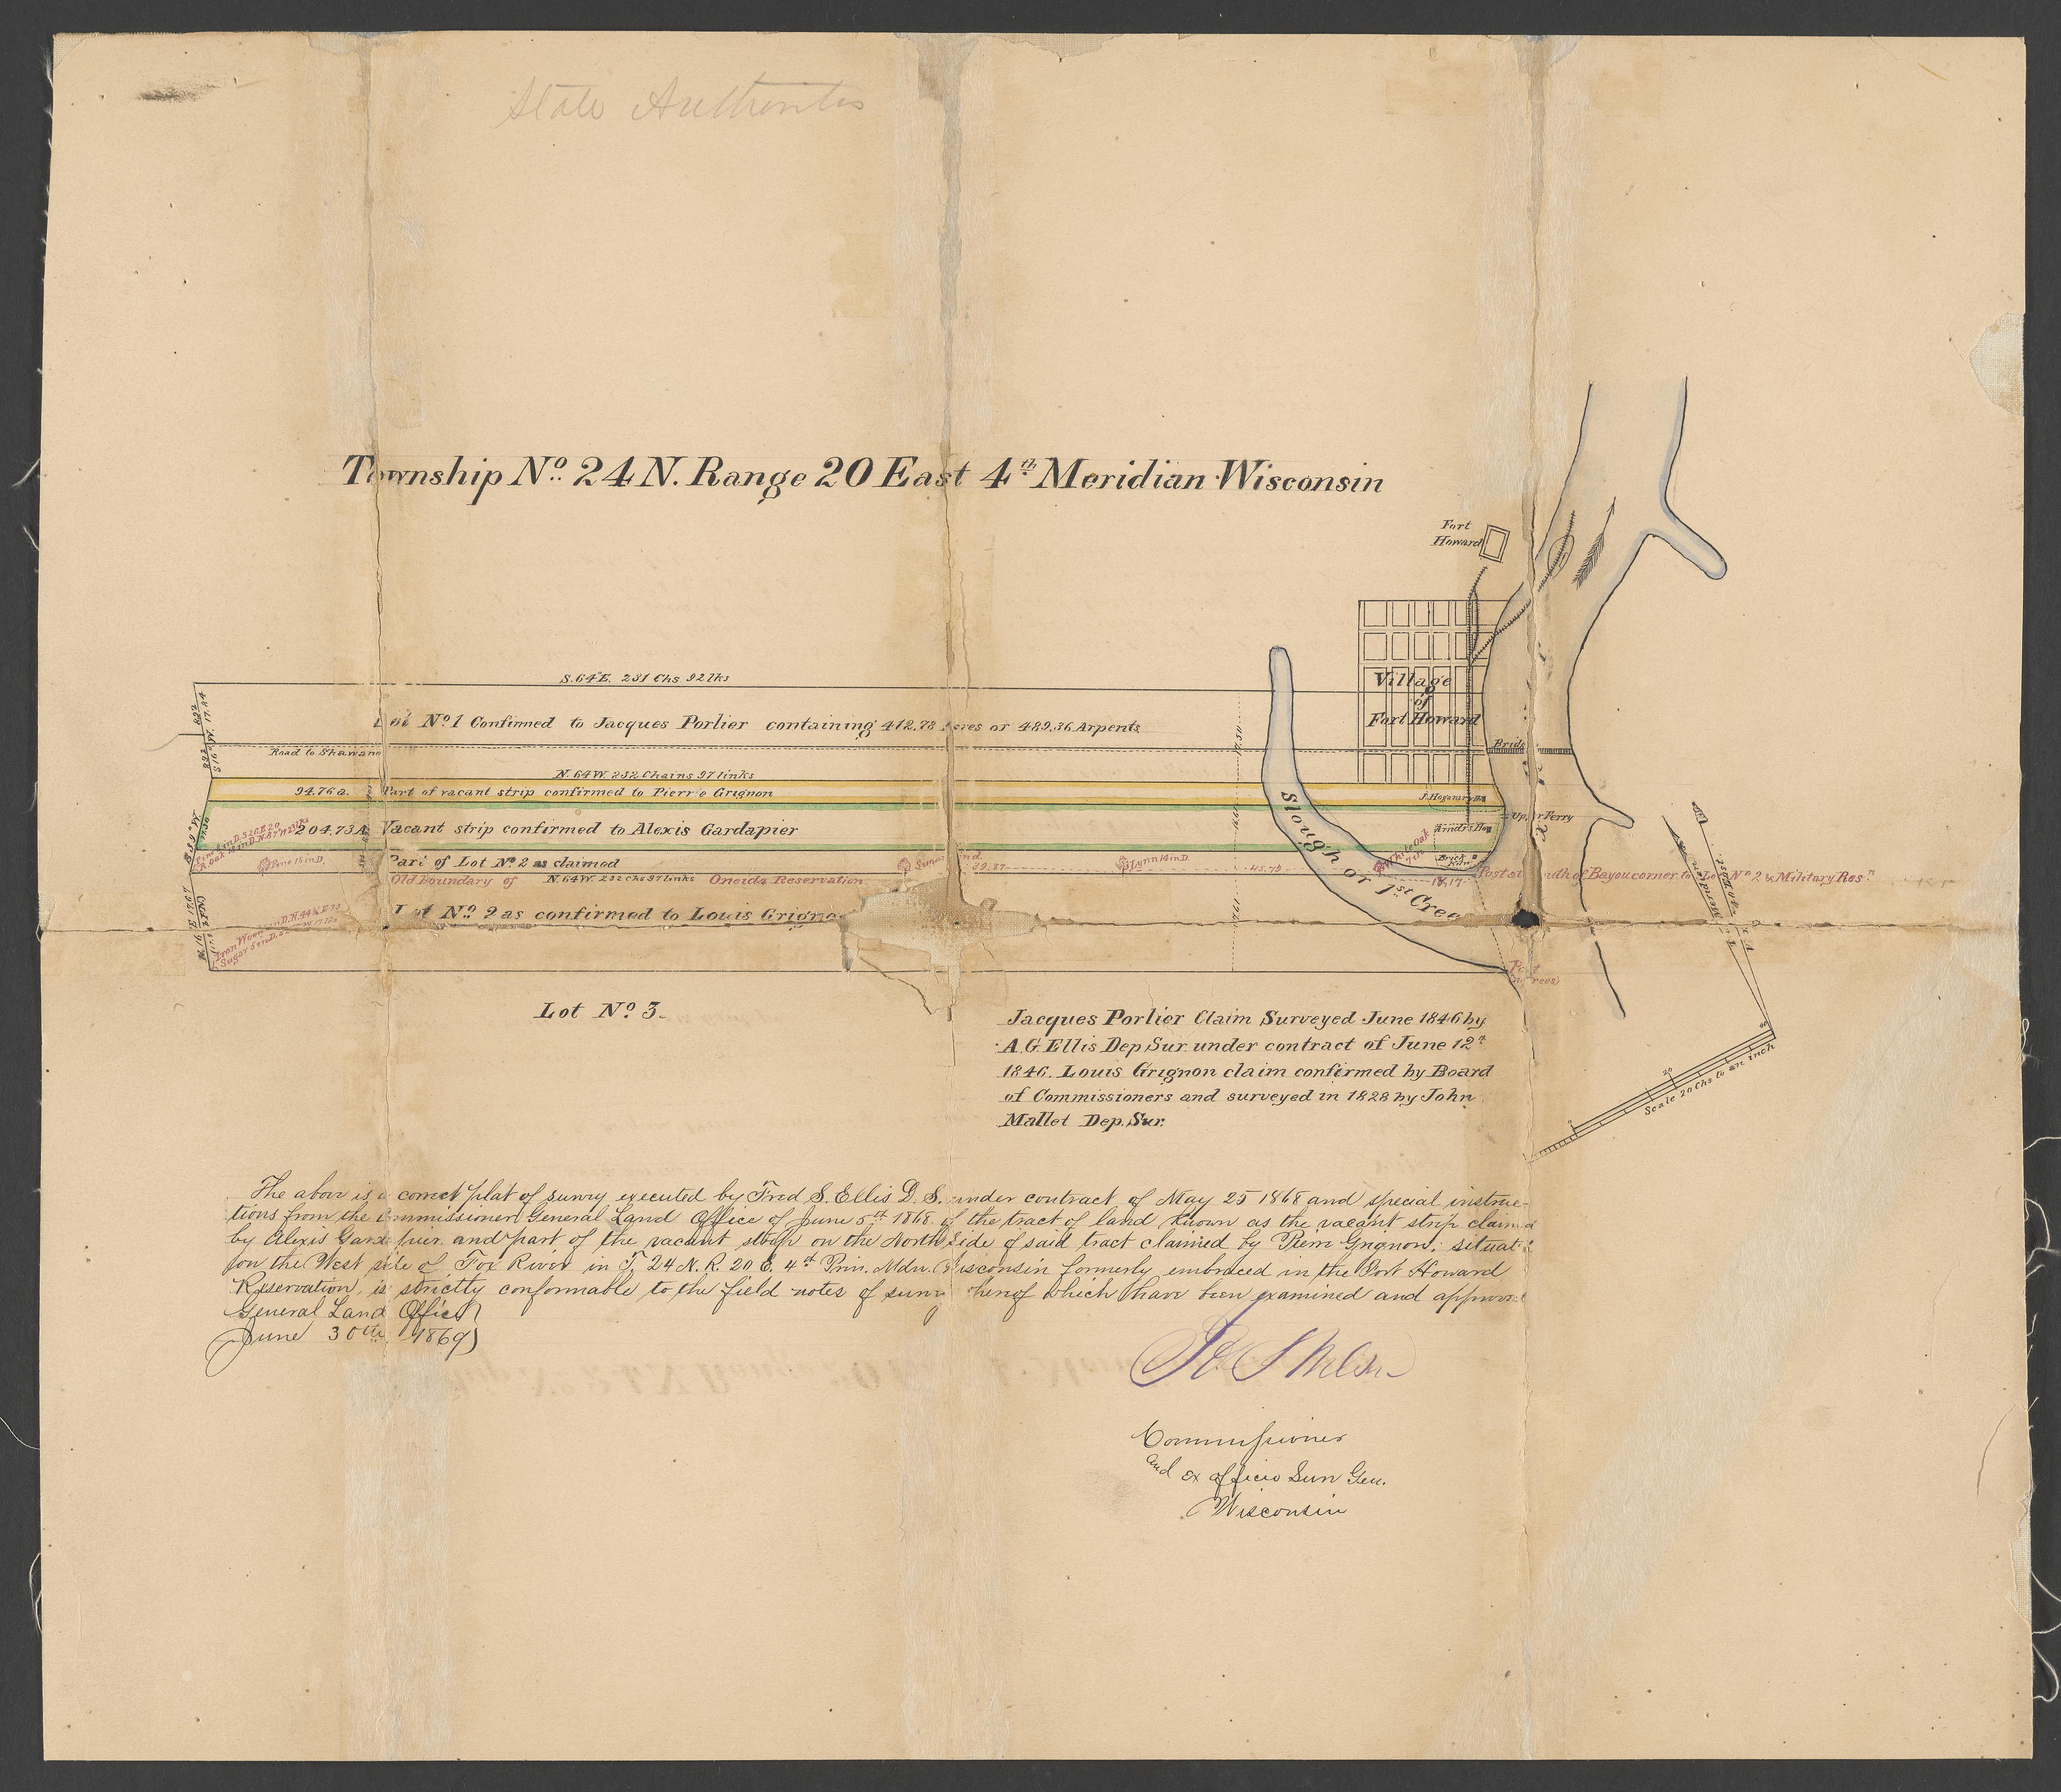 State Authorities
Township Nº 24 N. Range 20 East 4th Meridian Wisconsin
Fort
Howard
Village
of
Fort Howard
S. 64 E. 231 Chs 92 lks
Lot Nº 1 Confirmed to Jacques Porlier containing 412.73 Acres or 489.36 Arpents
Road to Shawano
N. 64 W. 232 Chains 97 links
94.76 a. Part of vacant strip confirmed to Pierre Grignon
204.73 A. Vacant strip confirmed to Alexis Gardapier
Pine 15 in D.
Part of Lot Nº 2 as claimed
Lynn 14 in D.
White Oak
45.75
18.17
Post at mouth of Bayou corner to Lot Nº 2 & Military Resn
Old Boundary of N. 64 W. 232 Chs 97 links Oneida Reservation
Lot Nº 2 as confirmed to Louis Grigno
Slough or 1st Cree
Upper Ferry
Lot Nº 3.
Scale 20 Chs to an inch
Jacques Porlier Claim Surveyed June 1846 by
A. G. Ellis Dep. Sur. under contract of June 12th
1846. Louis Grignon claim confirmed by Board
of Commissioners and surveyed in 1828 by John
Mallet Dep. Sur.
The above is a correct plat of survey executed by Fred S. Ellis D. S. under contract of May 25 1868 and special instruc-
tions from the Commissioner General Land Office of June 5th 1868 of the tract of land known as the vacant strip claimed
by Alexis Gardapier. and part of the vacant strip on the North side of said tract claimed by Pierre Grignon; situate
on the West side of Fox River in T. 24 N. R. 20 E. 4th Prin. Mdn. Wisconsin formerly embraced in the Fort Howard
Reservation, is strictly conformable to the field notes of survey thereof which have been examined and approved
General Land Office
June 30th 1869
Commissioner
and ex officio Surv Gen.
Wisconsin